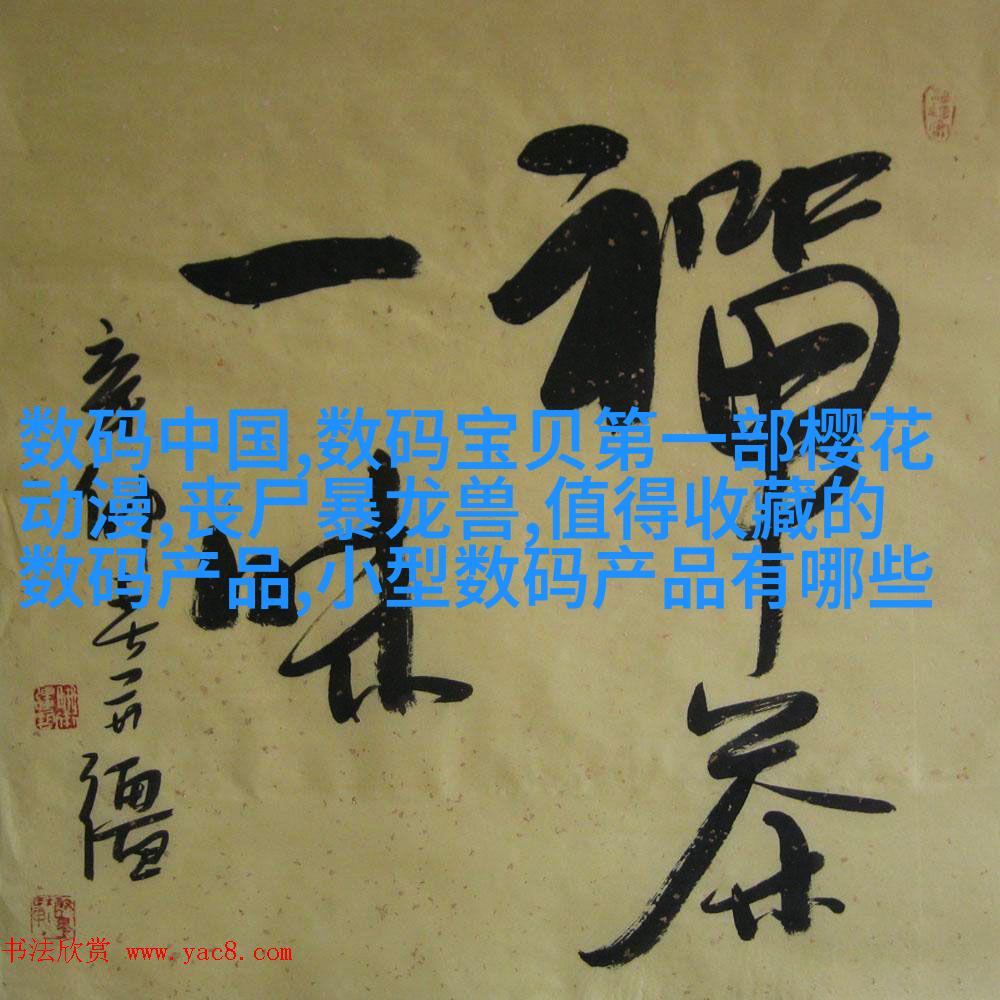 禅茶
一味
数码中国,数码宝贝第一部樱花
动漫,丧尸暴龙兽,值得收藏的
数码产品,小型数码产品有哪些
书法欣赏 www.yac8.com